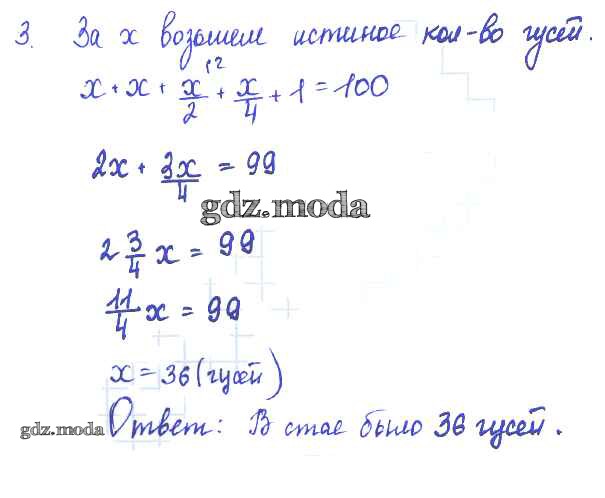 3. За x возьмем истиное кол-во гусей.
x + x + x/2 + x/4 + 1 = 100
2x + 3x/4 = 99
gdz.moda
2 3/4 x = 99
11/4 x = 99
x = 36 (гусей)
gdz.moda Ответ: В стае было 36 гусей.